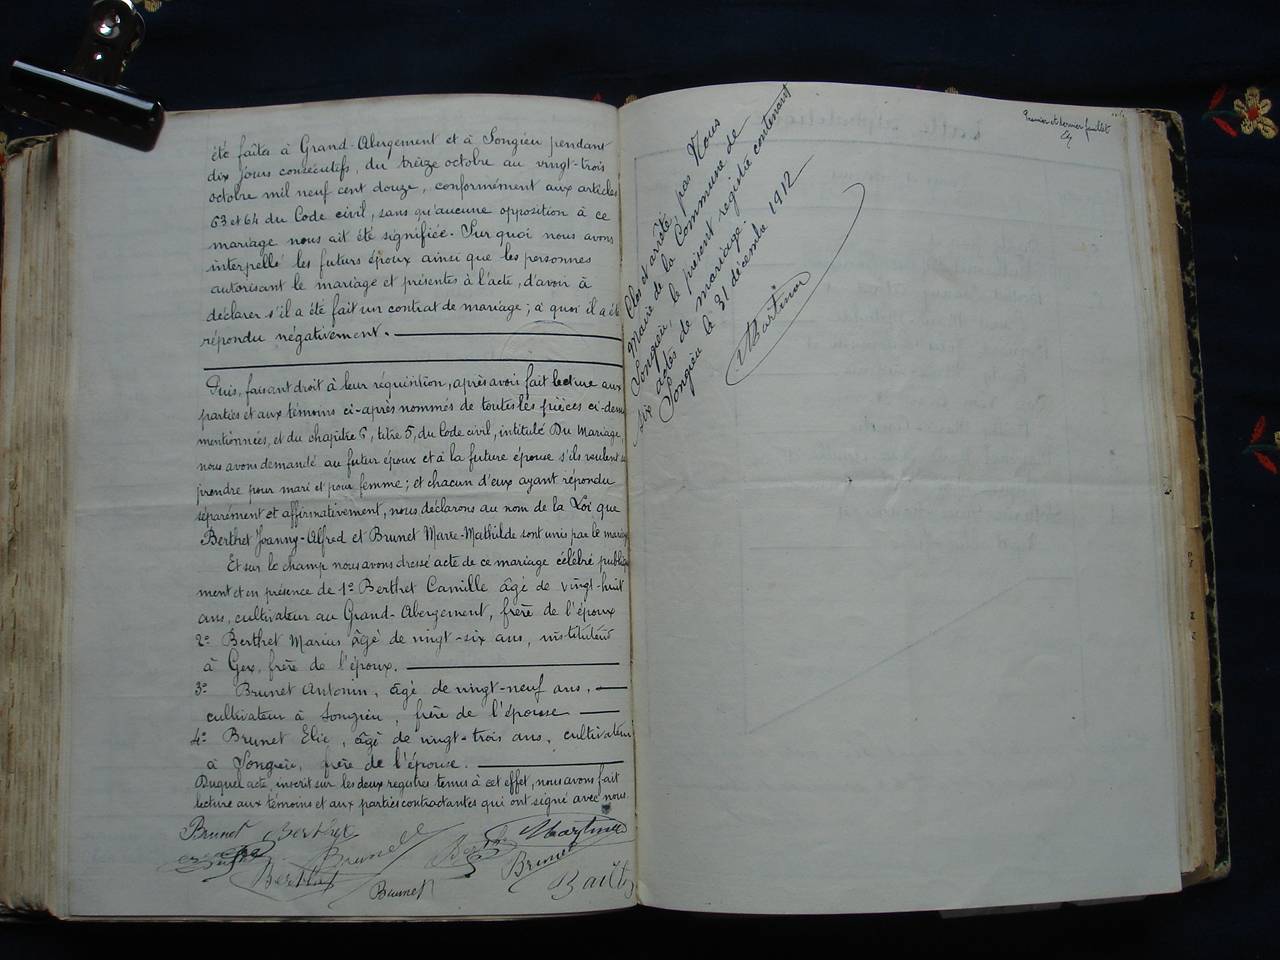 été faites à Grand-Abergement et à Songieu pendant
dix jours consécutifs, du treize octobre au vingt-trois
octobre mil neuf cent douze, conformément aux articles
63 et 64 du Code civil, sans qu'aucune opposition à ce
mariage nous ait été signifiée. Sur quoi nous avons
interpellé les futurs époux ainsi que les personnes
autorisant le mariage et présentes à l'acte, d'avoir à
déclarer s'il a été fait un contrat de mariage ; à quoi il a été
répondu négativement.
Puis, faisant droit à leur réquisition, après avoir fait lecture aux
parties et aux témoins ci-après nommés de toutes les pièces ci-dessus
mentionnées, et du chapitre 6, titre 5, du Code civil, intitulé Du Mariage,
nous avons demandé au futur époux et à la future épouse s'ils veulent se
prendre pour mari et pour femme ; et chacun d'eux ayant répondu
séparément et affirmativement, nous déclarons au nom de la Loi que
Berthet Joanny-Alfred et Brunet Marie-Mathilde sont unis par le mariage
Et sur le champ nous avons dressé acte de ce mariage célébré publique
ment et en présence de 1º Berthet Camille âgé de vingt-huit
ans, cultivateur au Grand-Abergement, frère de l'époux
2º Berthet Marius âgé de vingt-six ans, instituteur
à Gex, frère de l'époux.
3º Brunet Antonin, âgé de vingt-neuf ans,
cultivateur à Songieu, frère de l'épouse
4º Brunet Elie, âgé de vingt-trois ans, cultivateur
à Songieu, frère de l'épouse.
Duquel acte, inscrit sur les deux registres tenus à cet effet, nous avons fait
lecture aux témoins et aux parties contractantes qui ont signé avec nous.
Brunet Berthet Brunet Martinod
Berthet Brunet Brunet
Clos et arrêté par Nous
Maire de la Commune de
Songieu, le présent registre contenant
six actes de mariage.
Songieu le 31 décembre 1912
Premier et dernier feuillet